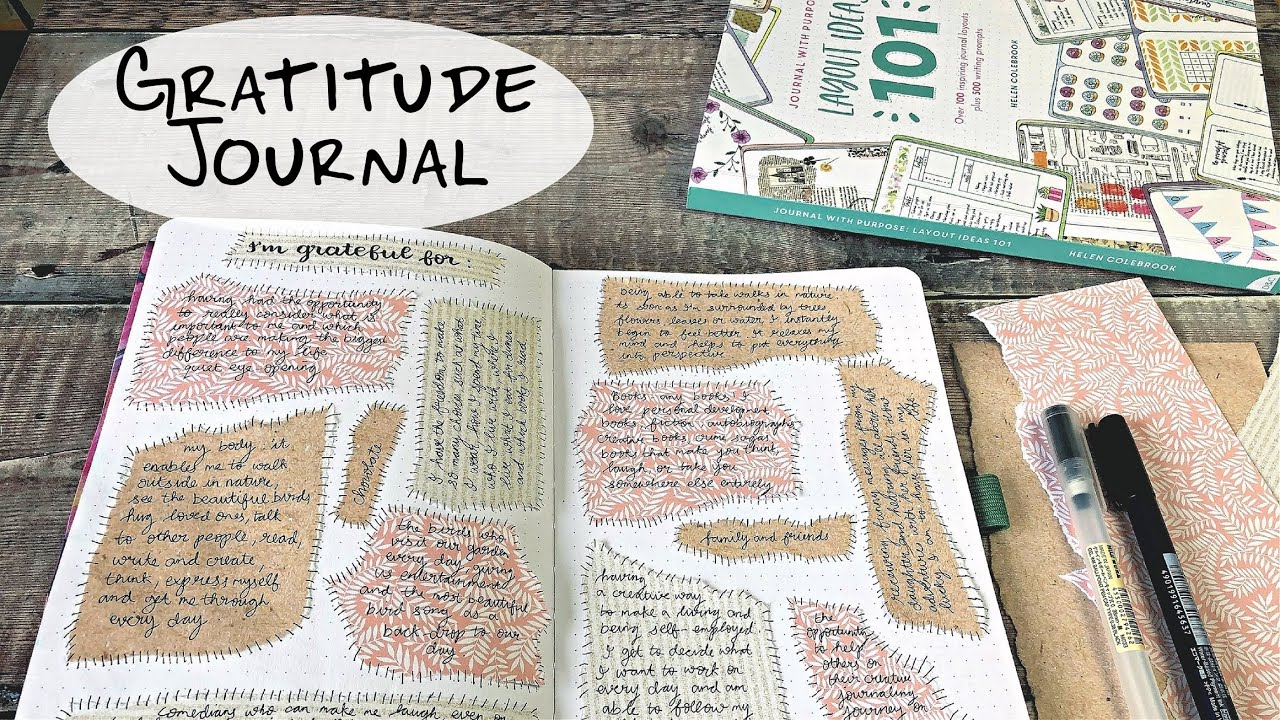 GRATITUDE
JOURNAL
JOURNAL WITH PURPOSE
LAYOUT IDEAS
101
Over 100 inspiring journal layouts
plus 500 writing prompts
HELEN COLEBROOK
JOURNAL WITH PURPOSE: LAYOUT IDEAS 101
HELEN COLEBROOK
I'm grateful for:
having had the opportunity
to really consider what is
important to me and which
people are making the biggest
difference to my life
- quiet eye opening
I have the freedom to make
so many choices, such as what
I want, how I spend my time,
who I live with, what I
live, what I do for a
my body it
enables me to walk
outside in nature,
see the beautiful birds,
hug loved ones, talk
to other people, read,
write and create,
think, express myself
and get me through
every day
chocolate
the birds who
visit our garden
every day giving
us entertainment
and the most beautiful
bird song as a
back-drop to our
day
comedians who can make me laugh even on
being able to take walks in nature
as soon as I'm surrounded by trees
flowers leaves or water I instantly
begin to feel better it relaxes my
mind and helps to put everything
into perspective
Books any books! I
love personal development
books, fiction, autobiographies
creative books, crime sagas,
books that make you think,
laugh or take you
somewhere else entirely
receiving funny messages from my
daughter and her
adventures
to have her in my life
family and friends
having
a creative way
to make a living and
being self-employed
I get to decide what
I want to work on
every day and am
able to follow my
the
opportunity
to help
others on
their creative
journaling
journey on
4901991645637